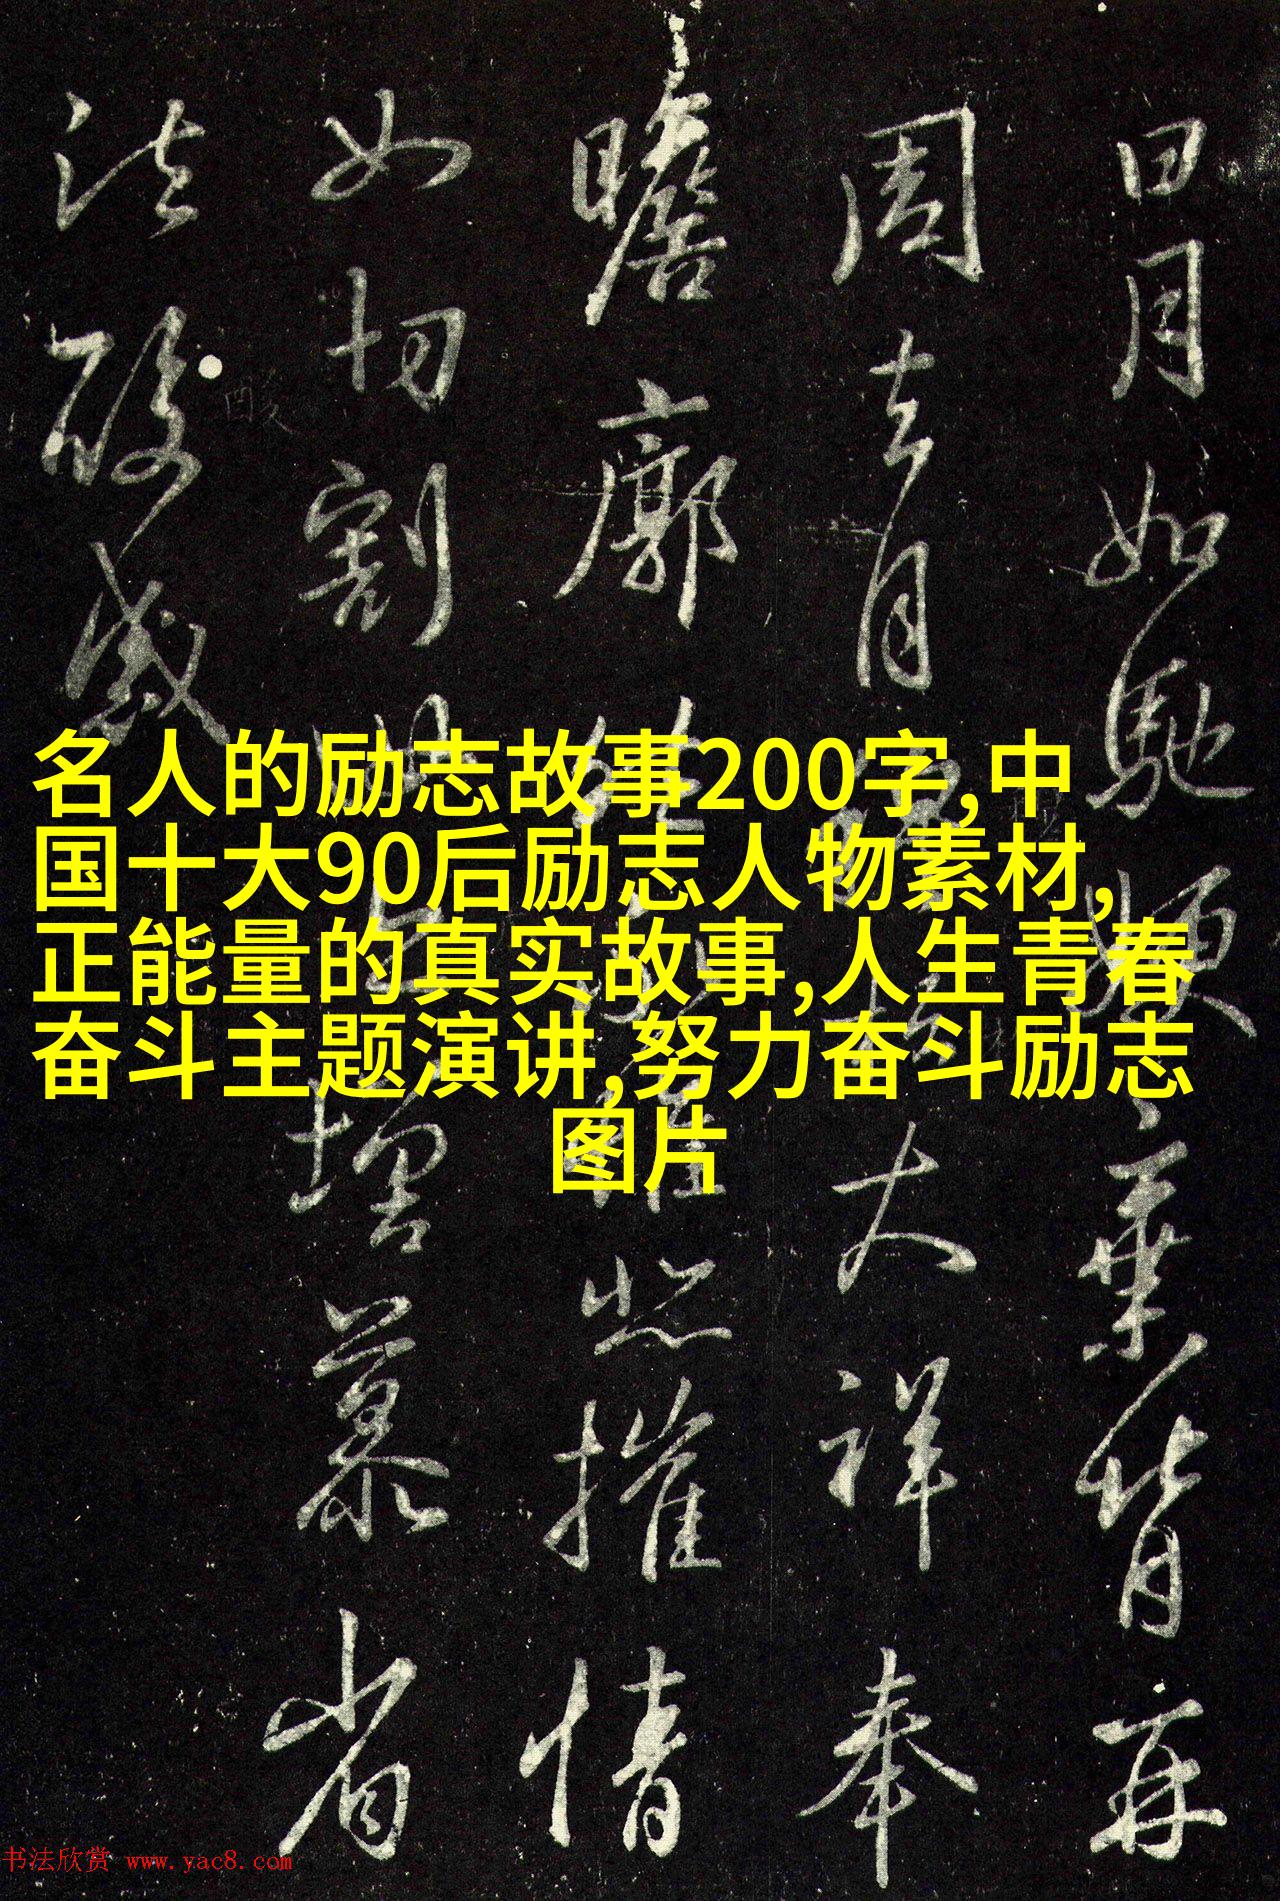 日月如馳嫂棄背再
周去月大祥奉
瞻廓惟悲摧情
如切割增慕省
泣酸感
酸
名人的励志故事200字,中
国十大90后励志人物素材,
正能量的真实故事,人生青春
奋斗主题演讲,努力奋斗励志
图片
书法欣赏 www.yac8.com